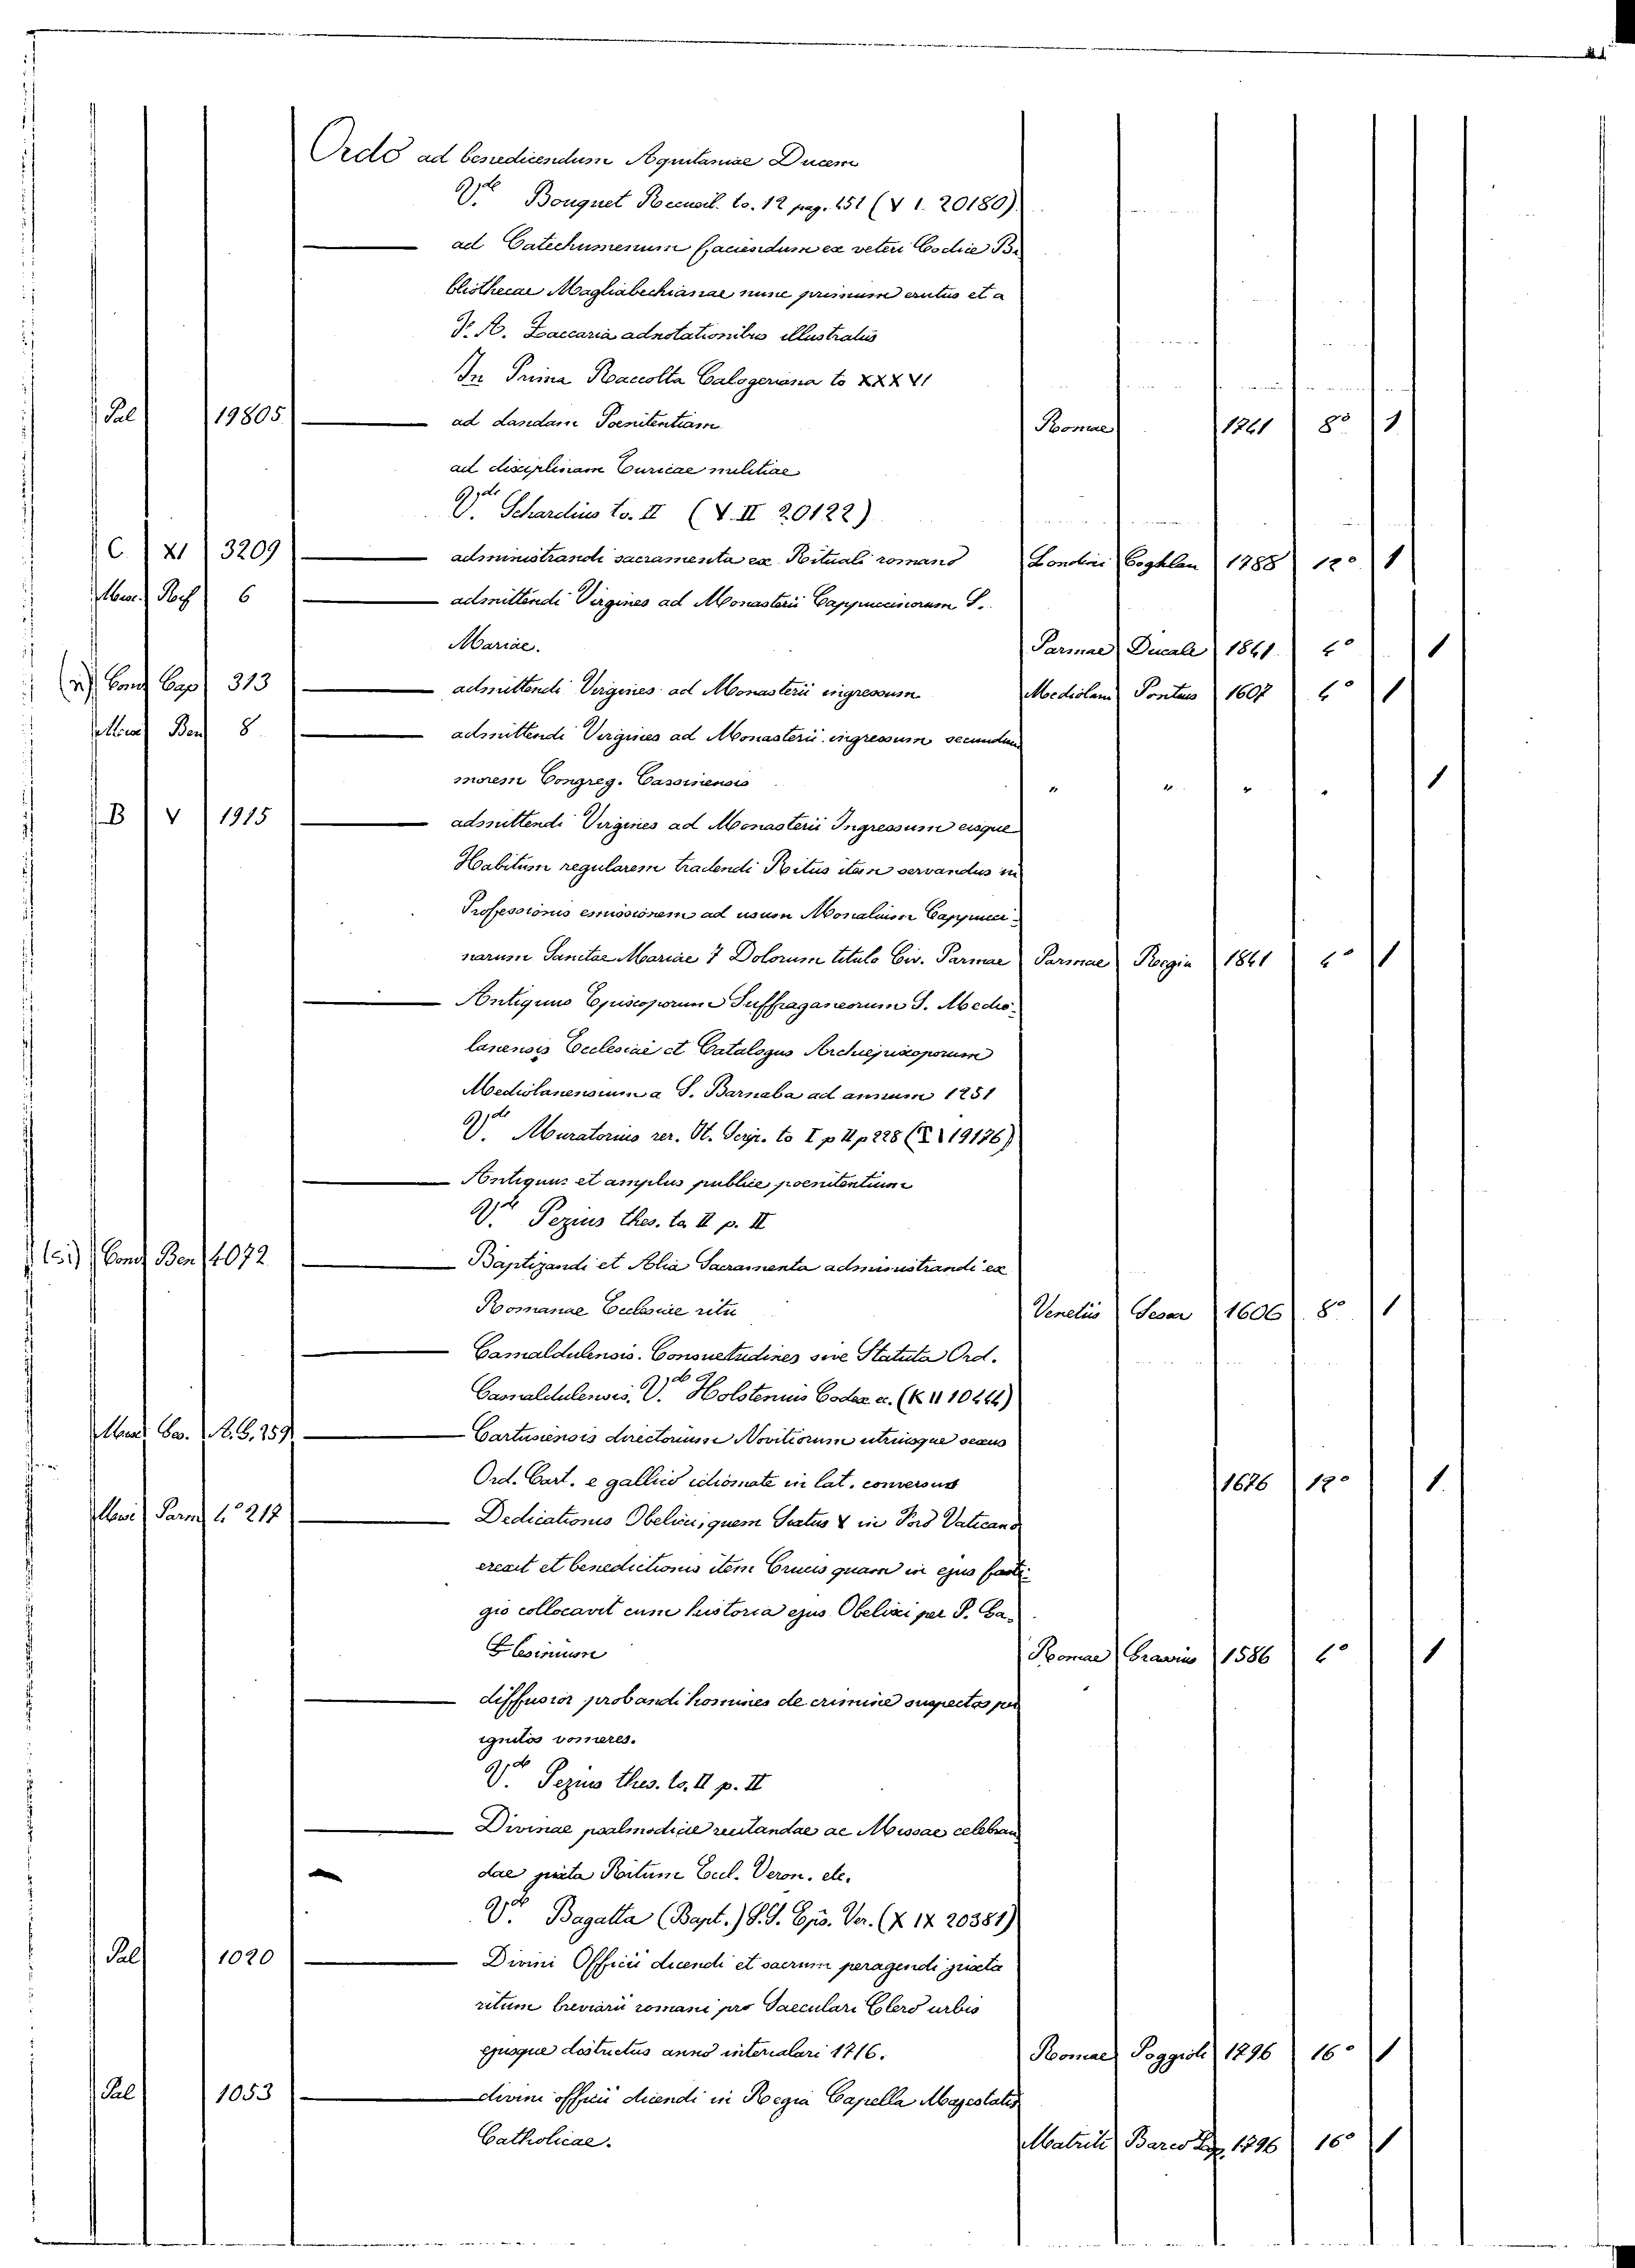 Ordo ad benedicendum Aquitaniae Ducem
V.de Bouquet Recueil. to. 12 pag. 451 (V I. 20180)
— ad Catechumenum faciendum ex veteri Codice Bi
bliothecae Magliabechianae nunc primum erutus et a
F. A. Zaccaria adnotationibus illustratus
In Prima Raccolta Calogeriana to XXXVI
Pal 19805 — ad dandam Poenitentiam Romae 1741 8° 1
ad disciplinam Curiae militiae
V.de Schardius to. II (V. II 20122)
C. XI 3209 — administrandi sacramenta ex Rituali romano Londini Coghlan 1788 12° 1
6 — admittendi Virgines ad Monasterii Cappuccinorum S.
Mariae. Parmae Ducale 1841 4° 1
Conv Cap 313 — admittendi Virgines ad Monasterii ingressum Mediolani Pontius 1607 4° 1
Ben 8 — admittendi Virgines ad Monasterii ingressum secundum
morem Congreg. Cassinensis " " " " 1
B V 1915 — admittendi Virgines ad Monasterii Ingressum eisque
Habitum regularem tradendi Ritus item servandus in
Professionis emissionem ad usum Monialium Cappucci-
narum Sanctae Mariae 7 Dolorum titulo Civ. Parmae Parmae Regia 1841 4° 1
— Antiquus Episcoporum Suffraganeorum S. Medio-
lanensis Ecclesiae et Catalogus Archiepiscoporum
Mediolanensium a S. Barnaba ad annum 1251
V.de Muratorius rer. It. Scrip. to I p II p 228 19176)
— Antiquus et amplus publice poenitentium
V.de Pezius thes. to II p. II
Conv Ben 4072 — Baptizandi et Alia Sacramenta administrandi ex
Romanae Ecclesiae ritu Venetiis Sessa 1606 8° 1
— Camaldulensis. Consuetudines sive Statuta Ord.
Camaldulensis. V.de Holstenius Codex ec. (K II 10244)
259 — Cartusiensis directorium Novitiorum utriusque sexus
Ord. Cart. e gallico idiomate in lat. conversus 1676 12° 1
Parm 4° 217 — Dedicationis Obelisci, quem Sixtus V in Foro Vaticano
erexit et benedictionis item Crucis quam in ejus fasti-
gio collocavit cum historia ejus Obelisci per P. Ga-
lesinium Romae Gravius 1586 4° 1
— diffusior probandi homines de crimine suspectos per
ignitos vomeres.
V.de Pezius thes. to. II p. II
— Divinae psalmodiae recitandae ac Missae celebran
dae juxta Ritum Eccl. Veron. etc.
V.de Bagatta (Bapt.) S.S. Epis. Ver. (X IX 20381)
Pal 1020 — Divini Officii dicendi et sacrum peragendi juxta
ritum breviarii romani pro Saeculari Clero urbis
ejusque districtus anno intercalari 1716. Romae Poggioli 1796 16° 1
Pal 1053 — divini officii dicendi in Regia Capella Majestatis
Catholicae. Matriti Barco 1796 16° 1